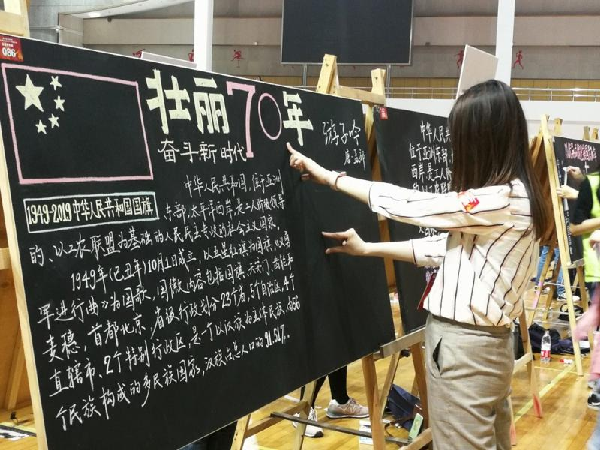 086
壮丽70年
游子吟
奋斗新时代
1949-2019中华人民共和国国旗
中华人民共和国,位于亚洲
东部,太平洋西岸,是工人阶级领导
的、以工农联盟为基础的人民民主专政的社会主义国家,
1949年(己丑年)10月1日成立,以五星红旗为国旗,
军进行曲》为国歌,国徽内容包括国旗、天安门、齿轮和
麦穗,首都北京,省级行政划分23个省,5个自治区,4个
直辖市,2个特别行政区,是一个以汉族为主体民族,
个民族构成的多民族国家,汉族占总人口的91.51%.
中华人民